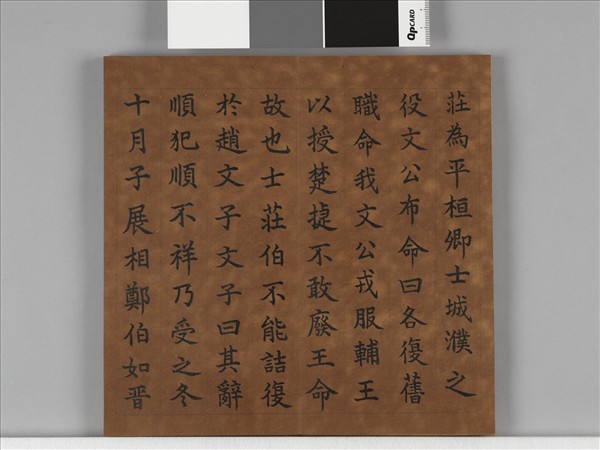 莊為平桓卿士城濮之
役文公布命曰各復舊
職命我文公戎服輔王
以授楚捷不敢廢王命
故也士莊伯不能詰復
於趙文子文子曰其辭
順犯順不祥乃受之冬
十月子展相鄭伯如晋
QPCARD